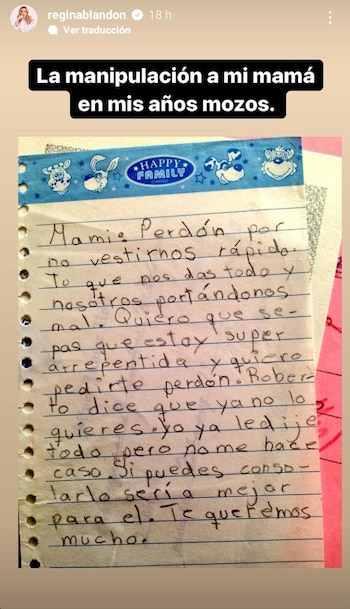 reginablandon 18 h
Ver traducción
La manipulación a mi mamá
en mis años mozos.
HAPPY
FAMILY
Mami: Perdón por
no vestirnos rápido.
Tu que nos das todo y
nosotros portándonos
mal. Quiero que se-
pas que estoy super
arrepentida y quiero
pedirte perdón. Rober
to dice que ya no lo
quieres yo ya le dije
todo pero no me hace
caso. Si puedes conso-
larlo sería mejor
para el. Te queremos
mucho.